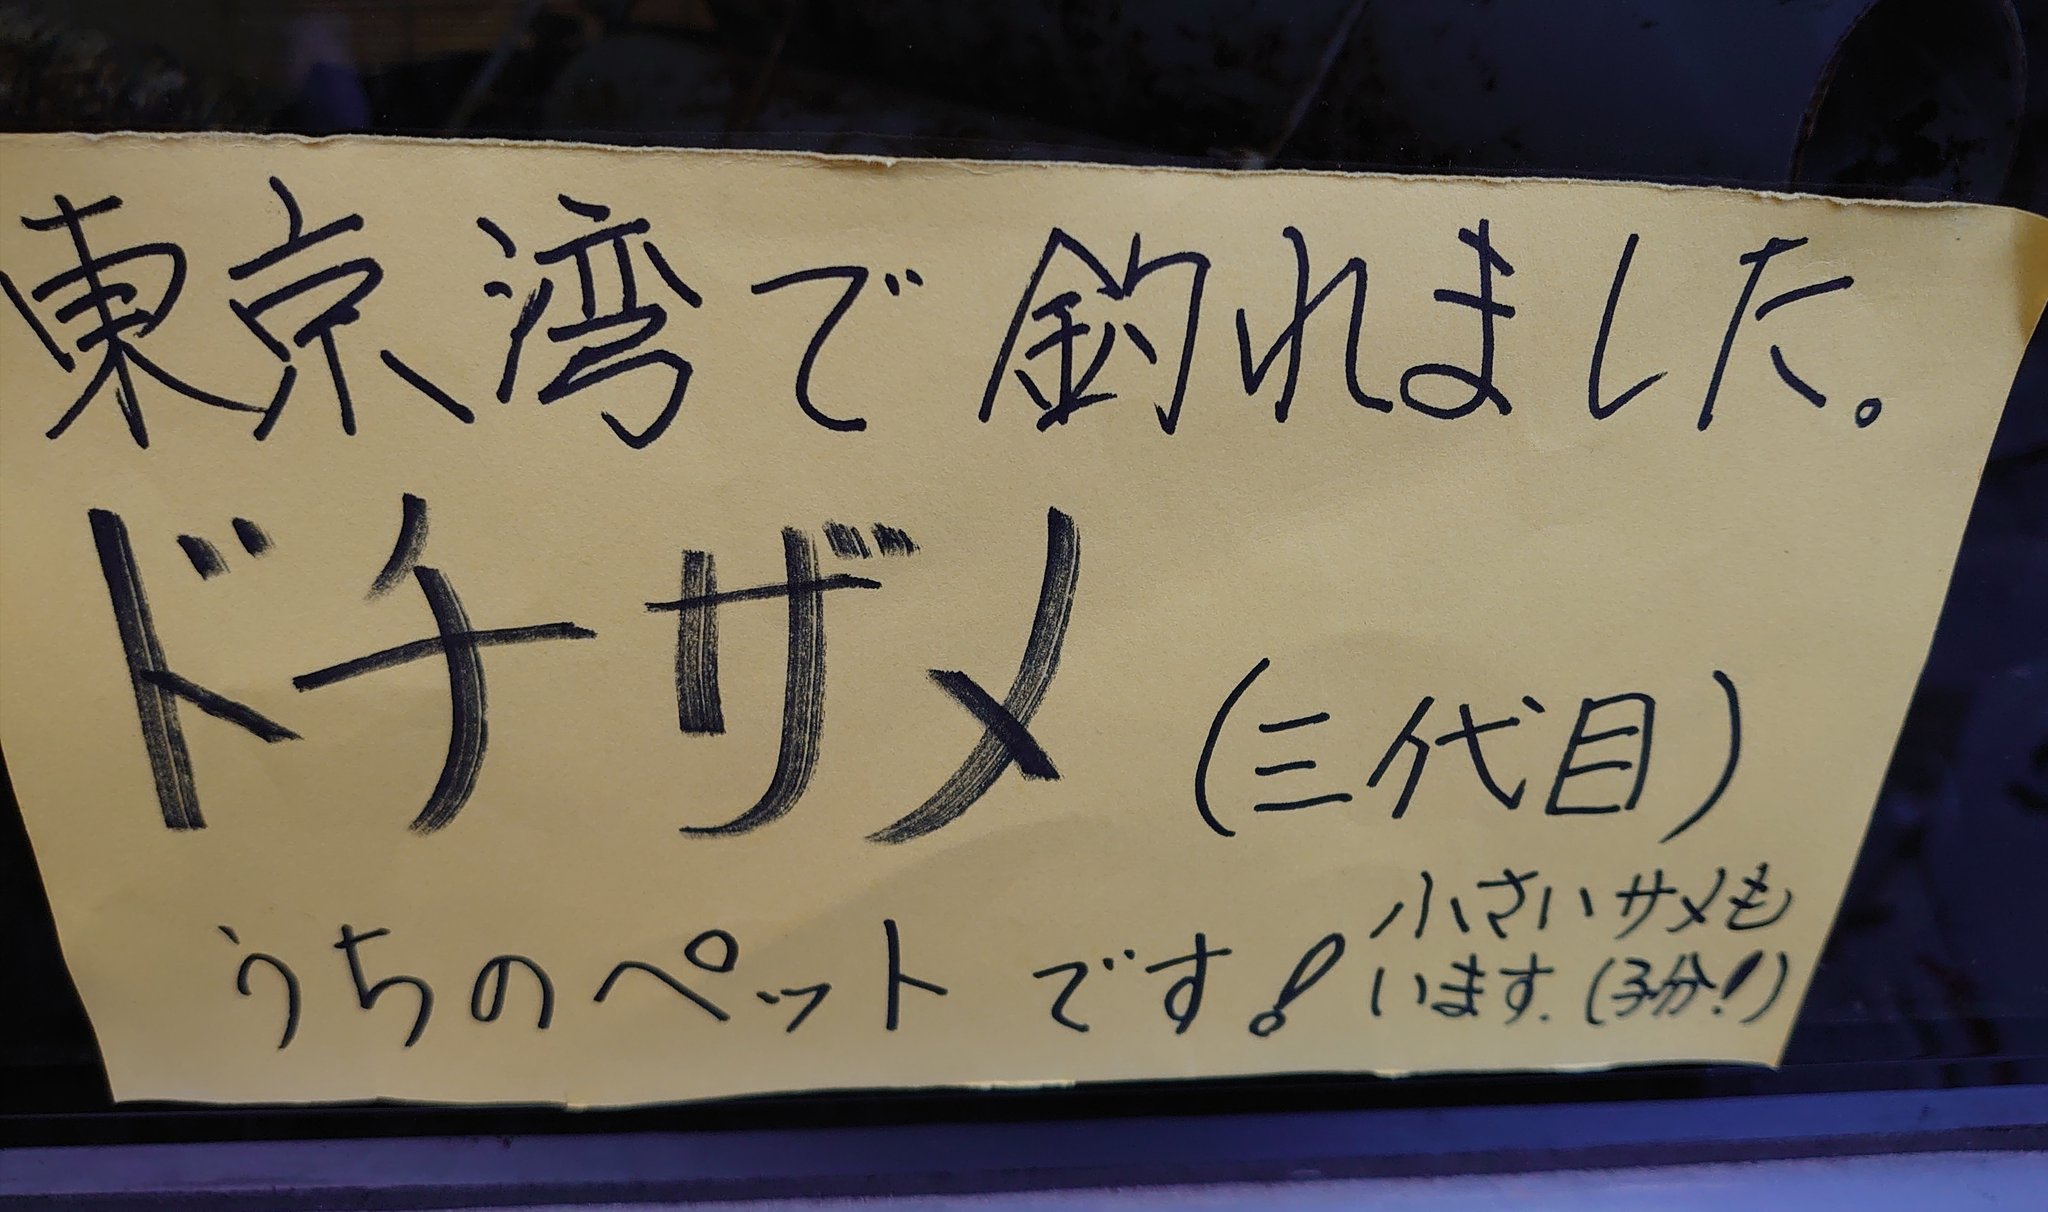 東京湾で釣れました。
ドチザメ（三代目）
うちのペットです！
小さいサメも
います.（子分！）